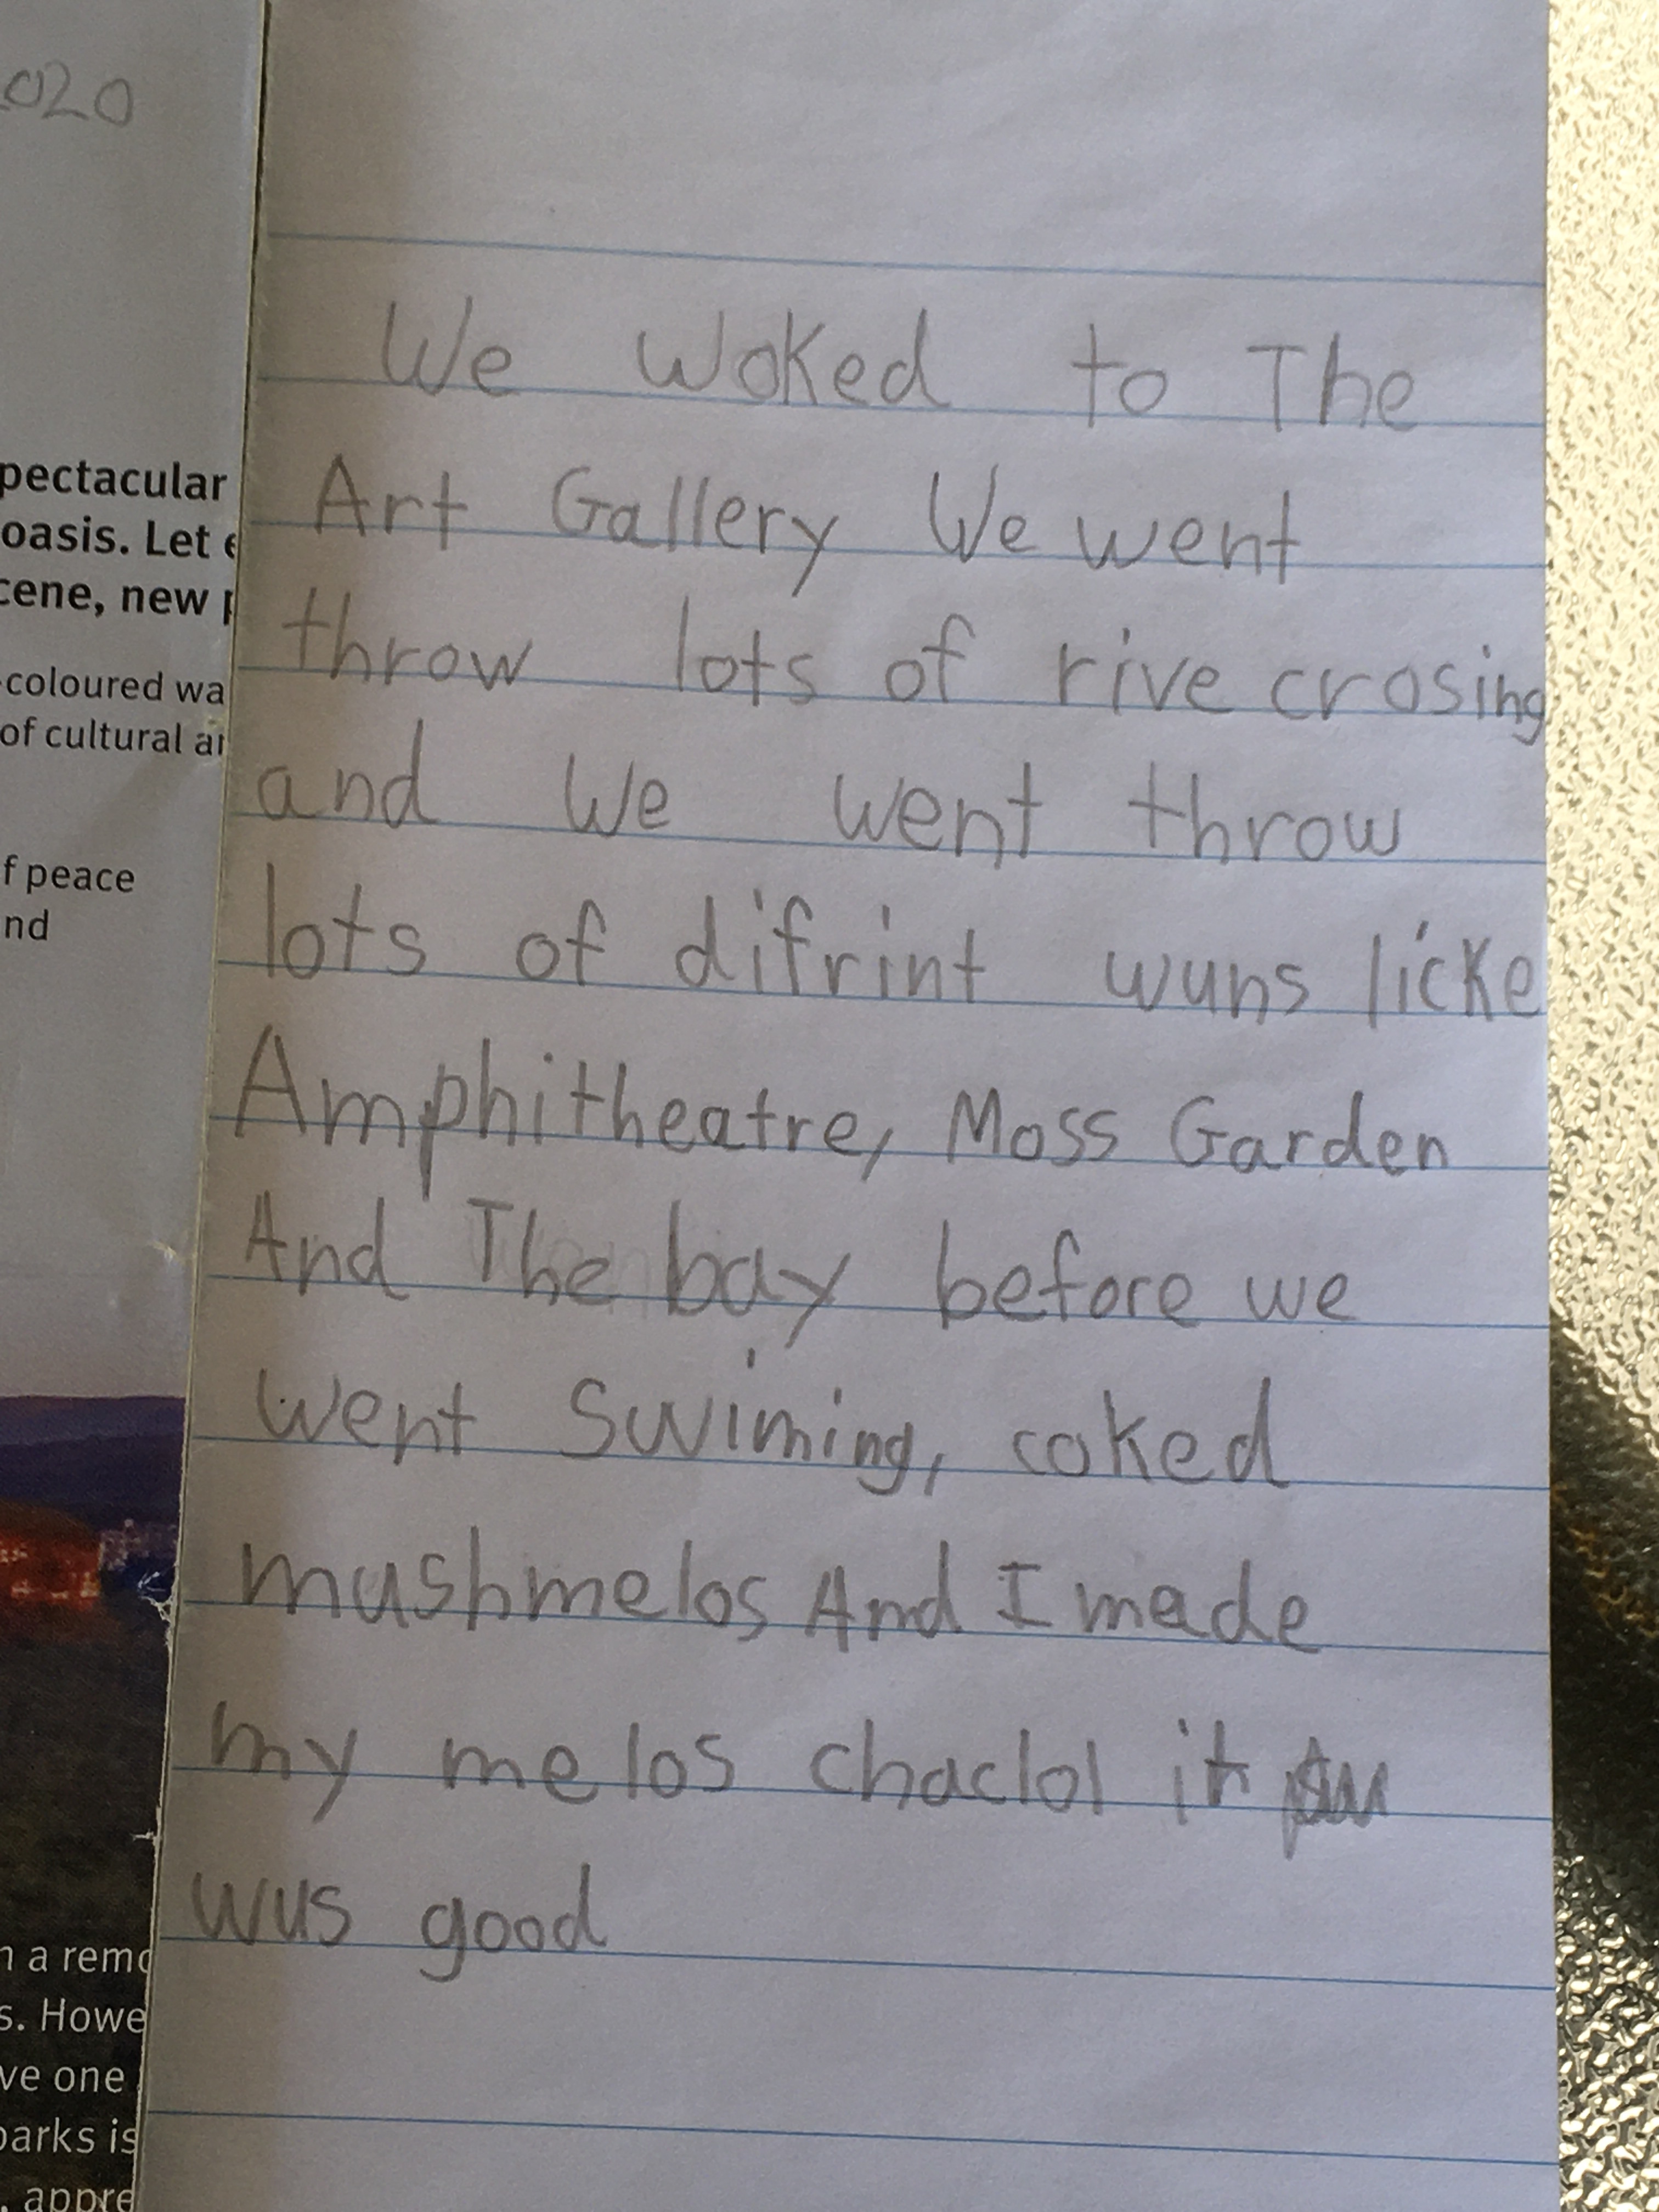 2020
pectacular
oasis. Let
cene, new
coloured wa
of cultural
f peace
nd
We Woked to The
Art Gallery We went
throw lots of rive crosing
and We went throw
lots of difrint wuns licke
Amphitheatre, Moss Garden
And The bay before we
went Swiming, coked
mushmelos And I made
my melos chaclol it
wus good
n a remo
s. Howe
ve one
parks is
appre